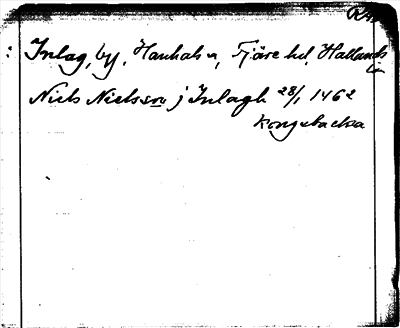 Inlag, by, Hanhals sn, Fjäre hd, Hallands
län
Niels Nielsson j Inlagh 28/1 1462
Kongsbacka